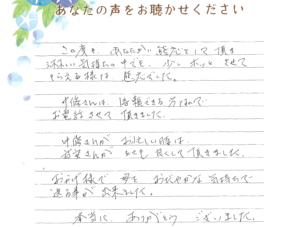 あなたの声をお聴かせください
この度は、あたたかい 施設として 頂き
淋しい気持ちの中でも、少し ホッと させて
もらえる様な 施設でした。
中條さんは、信頼できる方なので
お電話させて 頂きました。
中條さんが お忙しい時は、
さんが とても 良くして 頂きました。
おかげ様で 母を おだやかな 気持ちで
送る事が 出来ました。
本当に、ありがとう ございました。